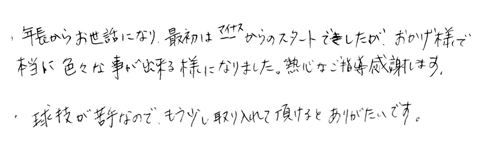 ・年長からお世話になり、最初はマイナスからのスタートでしたが、おかげ様で
本当に色々な事が出来る様になりました。熱心なご指導感謝します。
・球技が苦手なので、もう少し取り入れて頂けるとありがたいです。